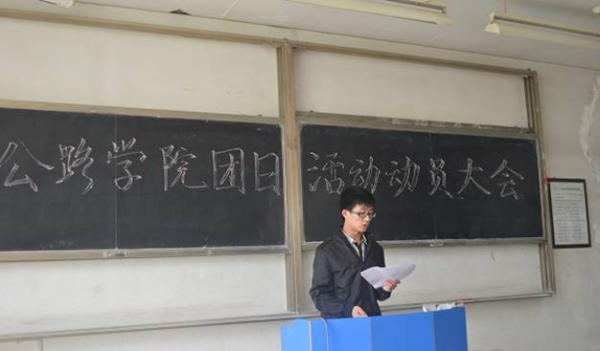 公路学院团日活动动员大会